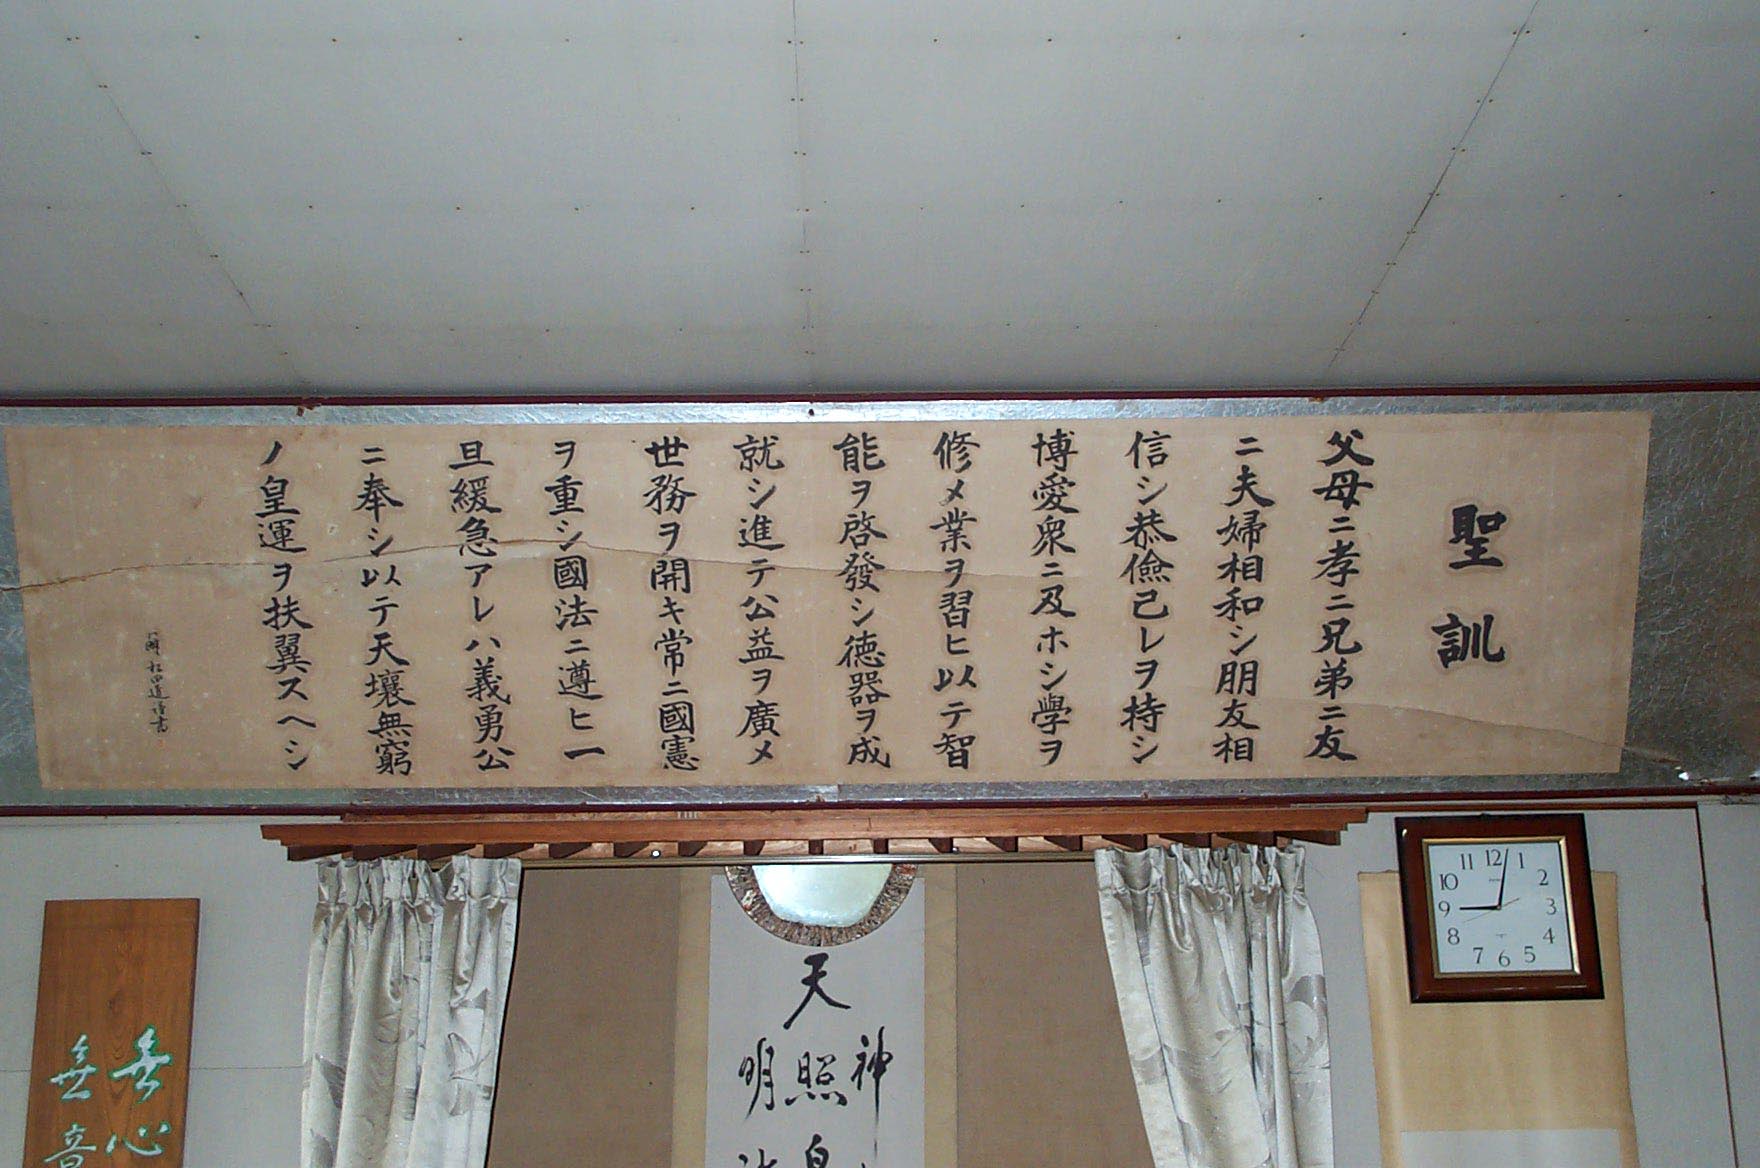 聖訓
父母ニ孝ニ兄弟ニ友
ニ夫婦相和シ朋友相
信シ恭儉己レヲ持シ
博愛衆ニ及ホシ學ヲ
修メ業ヲ習ヒ以テ智
能ヲ啓發シ徳器ヲ成
就シ進テ公益ヲ廣メ
世務ヲ開キ常ニ國憲
ヲ重シ國法ニ遵ヒ一
旦緩急アレハ義勇公
ニ奉シ以テ天壤無窮
ノ皇運ヲ扶翼スヘシ
12
1
2
3
4
5
6
7
8
9
10
11
神
天照皇
明
無心
無音